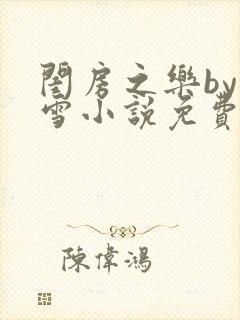 閨房之樂by
雪小說免費
陳偉鴻